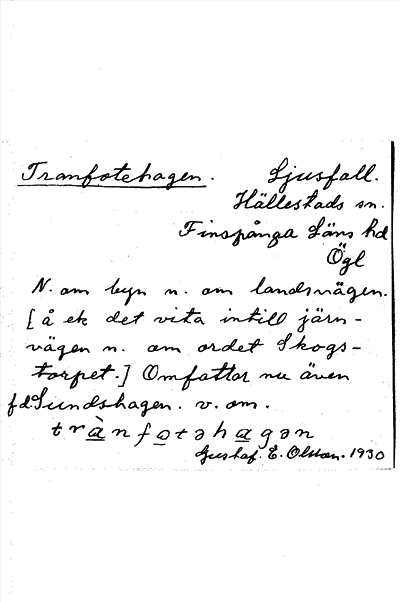 Tranfotehagen. Ljusfall.
Hällestads sn.
Finspånga Läns hd
Ögl
N. om byn n. om landsvägen.
[å ek det vita intill järn-
vägen n. om ordet Skogs-
torpet.] Omfattar nu även
f.d. Sundshagen. v. om.
trànfotəhagən
Gustaf. E. Olsson. 1930